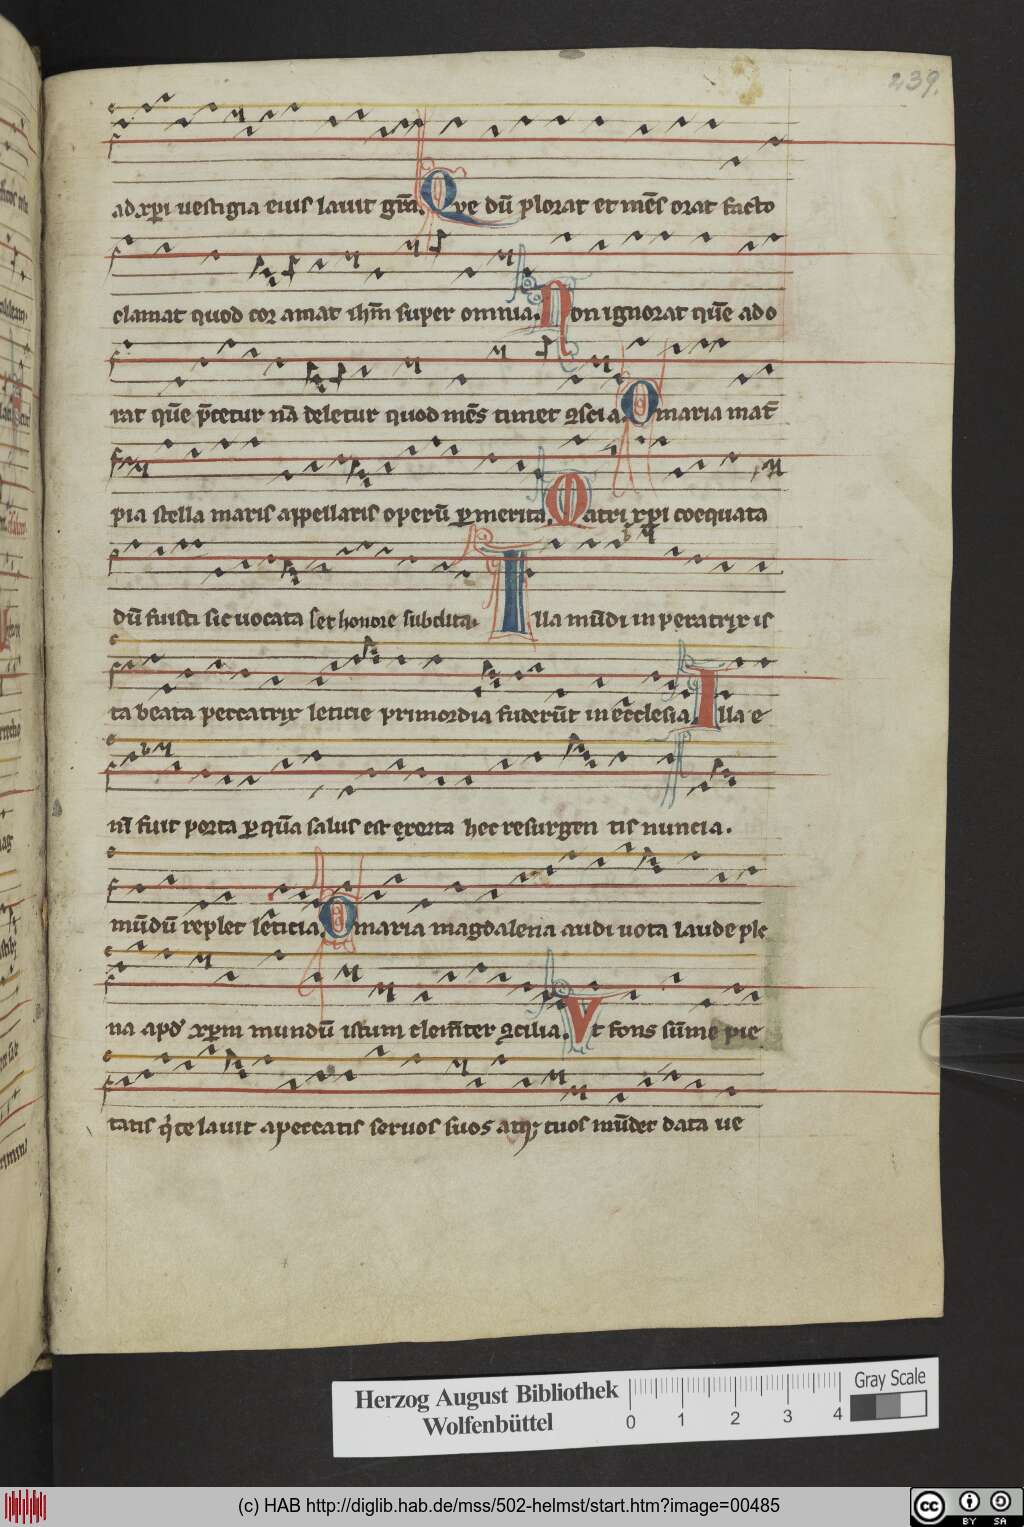 239.
ad xp̄i uestigia eius lauit gr̄ia. Que dū plorat et mēs orat facto
clamat quod cor amat ihm̄ super omnia. Non ignorat quē ado
rat quē p̄cetur nā deletur quod mēs timet ɔscia. O maria mat̄
pia stella maris appellaris operū ꝑ merita. Matri xp̄i coequata
dū fuisti sic uocata set honore subdita. Illa mūdi inperatrix is
ta beata peccatrix leticie primordia fuderūt in ecclesia. Illa e
nī fuit porta ꝑ quā salus est exorta hec resurgen tis nuncia.
mūdū replet leticia. O maria magdalena audi uota laude ple
na apd̄ xp̄m mundū istum clemēter ɔcilia. Vt fons sūme pie
tatis q̇ te lauit apeccatis seruos suos atq; tuos mūdet data ue
Herzog August Bibliothek
Wolfenbüttel
0 1 2 3 4
Gray Scale
(c) HAB http://diglib.hab.de/mss/502-helmst/start.htm?image=00485
cc BY SA